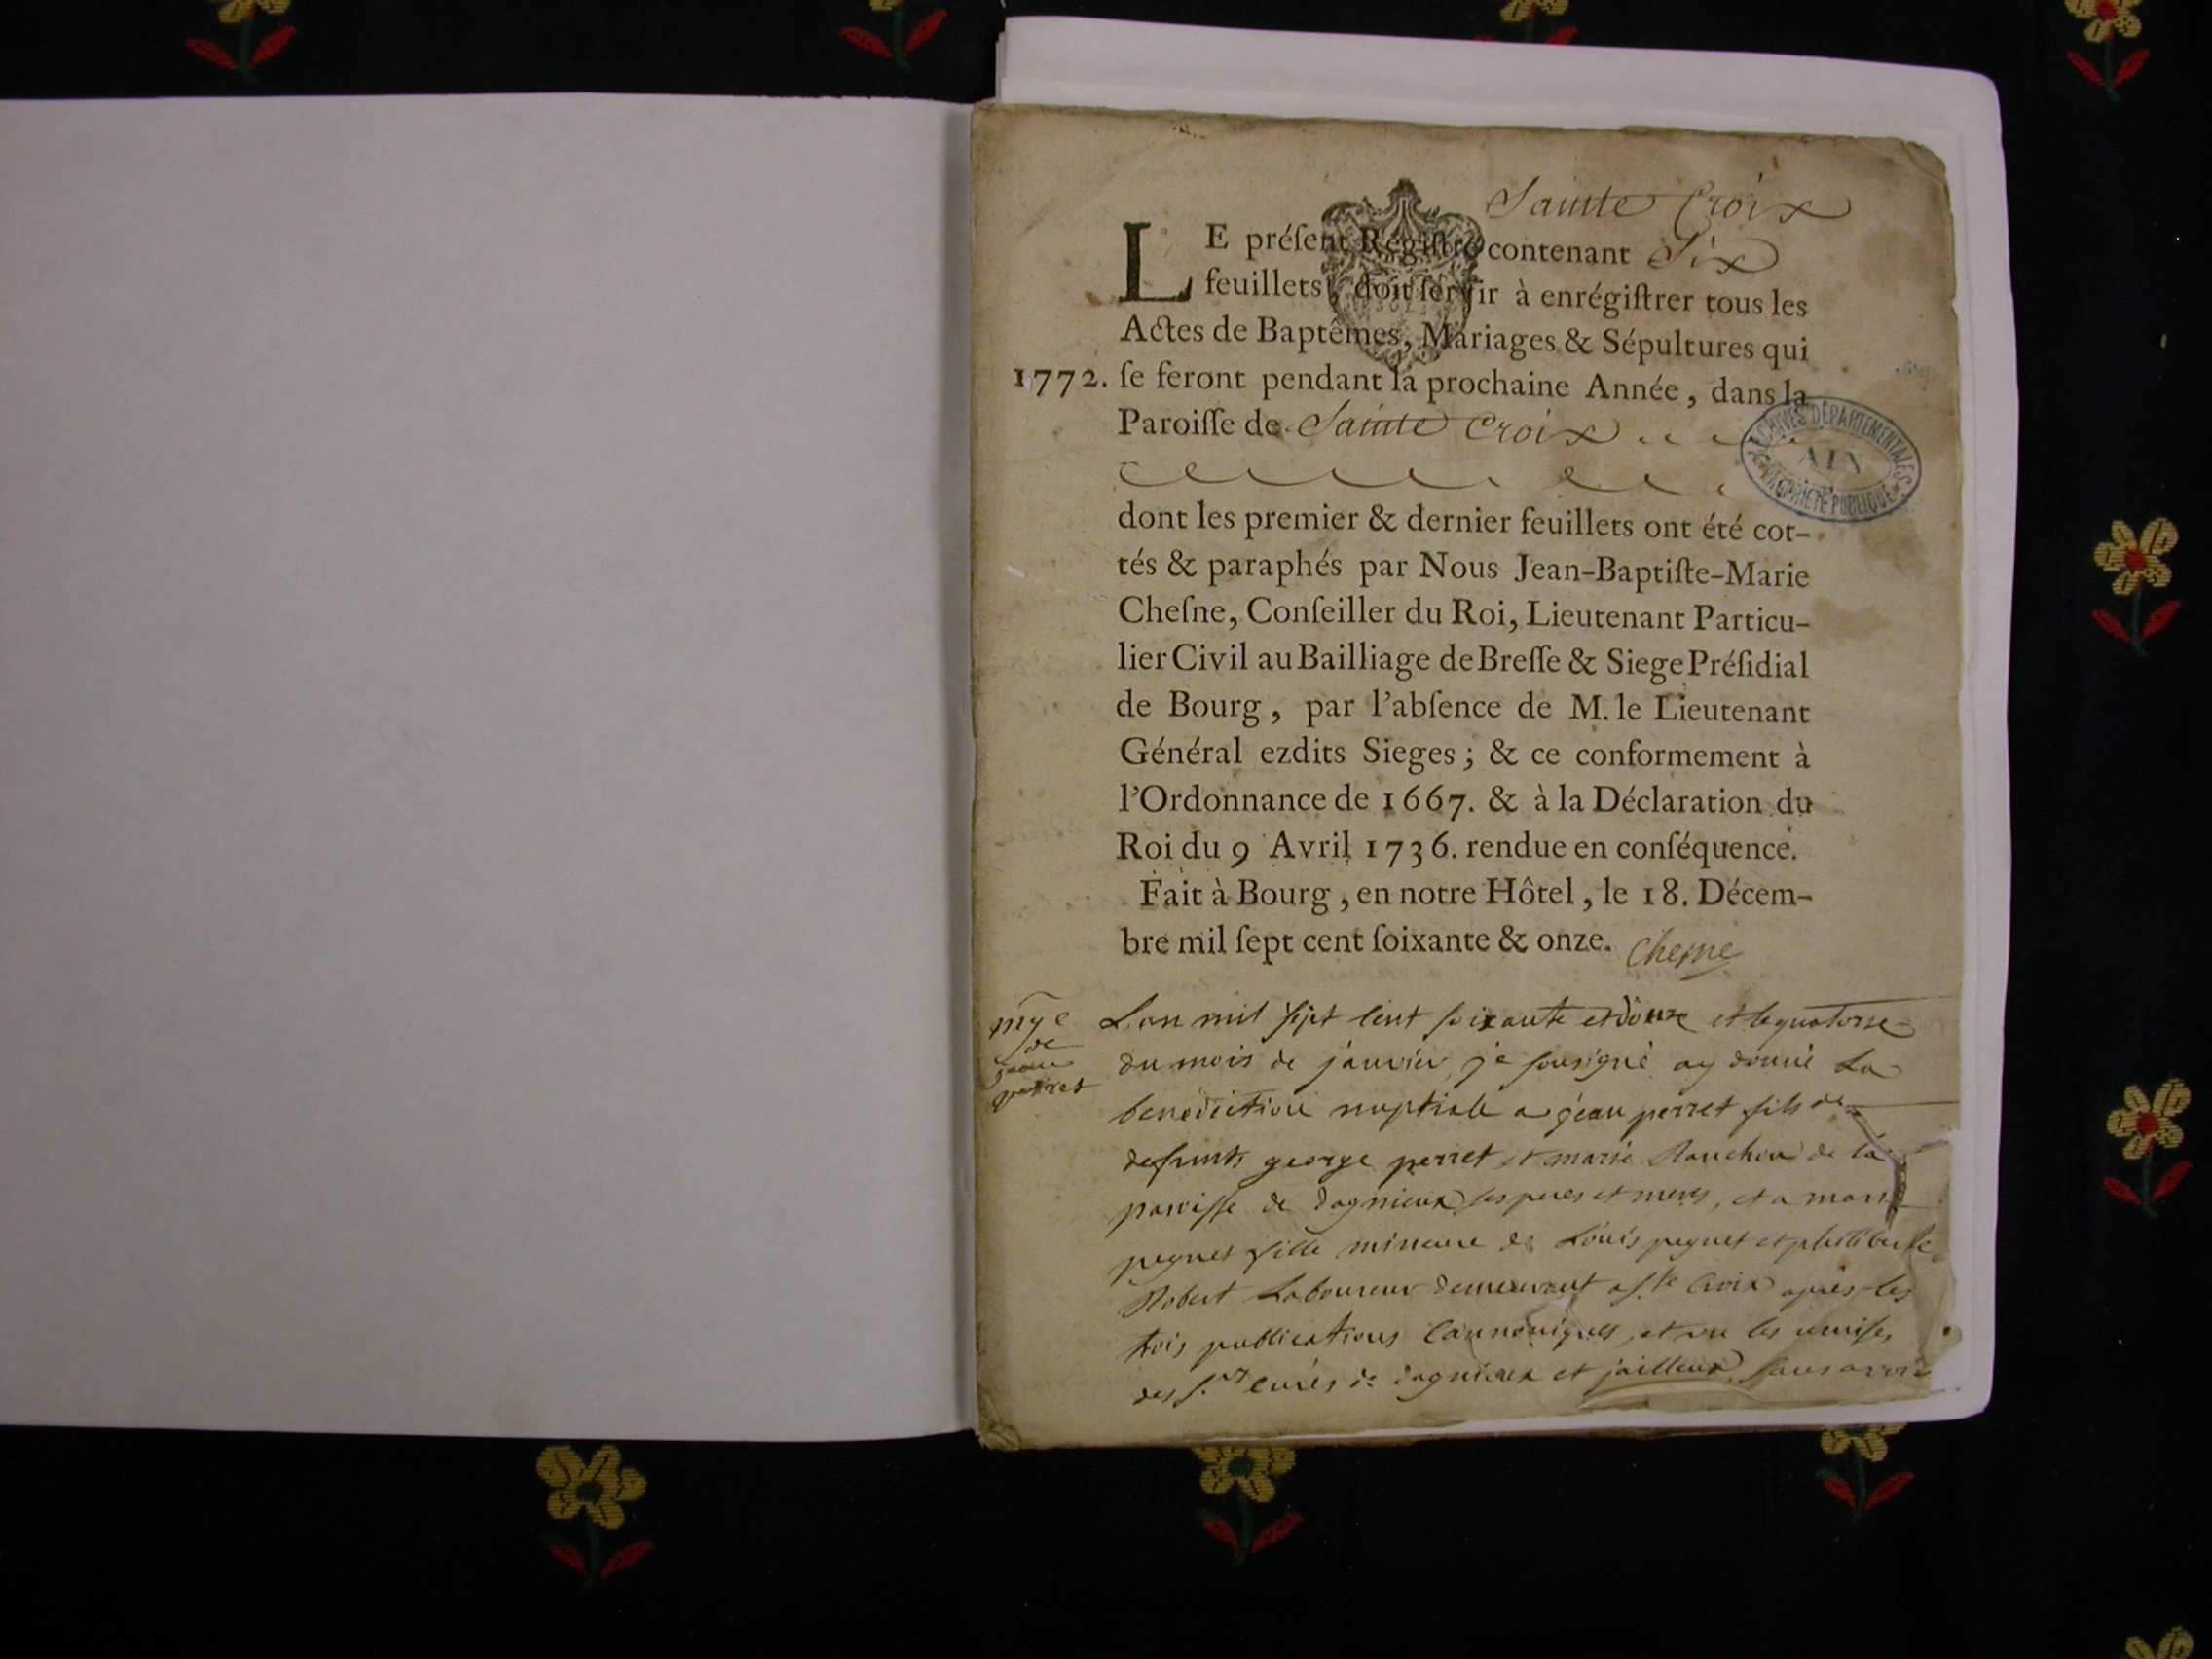 Sainte Croix
LE préſent Régiſtre contenant Six
feuillets, doit ſervir à enrégiſtrer tous les
Actes de Baptêmes, Mariages & Sépultures qui
1772. ſe feront pendant la prochaine Année, dans la
Paroiſſe de Sainte Croix
ARCHIVES DÉPARTEMENTALES
AIN
PROPRIÉTÉ PUBLIQUE
dont les premier & dernier feuillets ont été cot-
tés & paraphés par Nous Jean-Baptiſte-Marie
Cheſne, Conſeiller du Roi, Lieutenant Particu-
lier Civil au Bailliage de Breſſe & Siege Préſidial
de Bourg, par l'abſence de M. le Lieutenant
Général ezdits Sieges; & ce conformement à
l'Ordonnance de 1667. & à la Déclaration du
Roi du 9 Avril 1736. rendue en conſéquence.
Fait à Bourg, en notre Hôtel, le 18. Décem-
bre mil ſept cent ſoixante & onze. Chesne
mge
de
jean
perret
L'an mil sept cent soixante et douze et le quatorse
du mois de janvier je sousigné ay donné La
benediction nuptiale a jean perret fils de
defunts george perret et marie de la
paroisse de dagnieux ses peres et meres, et a
peguet fille mineure de Louis peguet et philiberte
Robert Laboureur demeurant a Ste Croix après les
trois publications cannoniques, et vu les remises
des Srs curés de dagnieux et jailleux, sans avoir